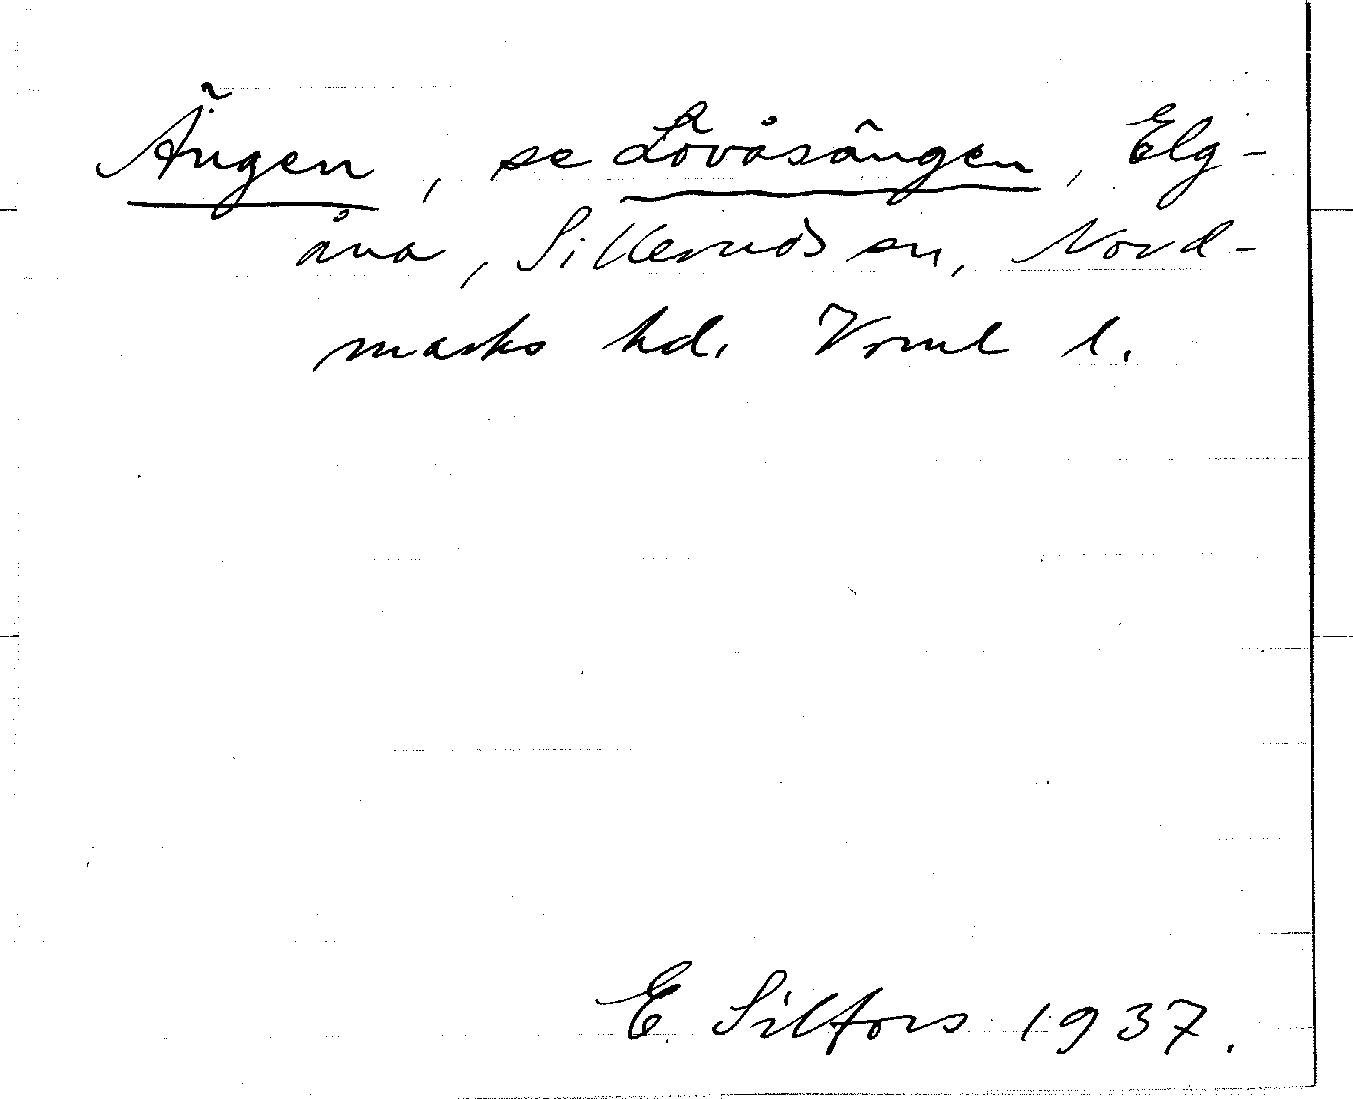 Ängen, se Lövåsängen, Elg-
åna, Silleruds sn, Nord-
marks hd. Vrml l.
E Silfors 1937.